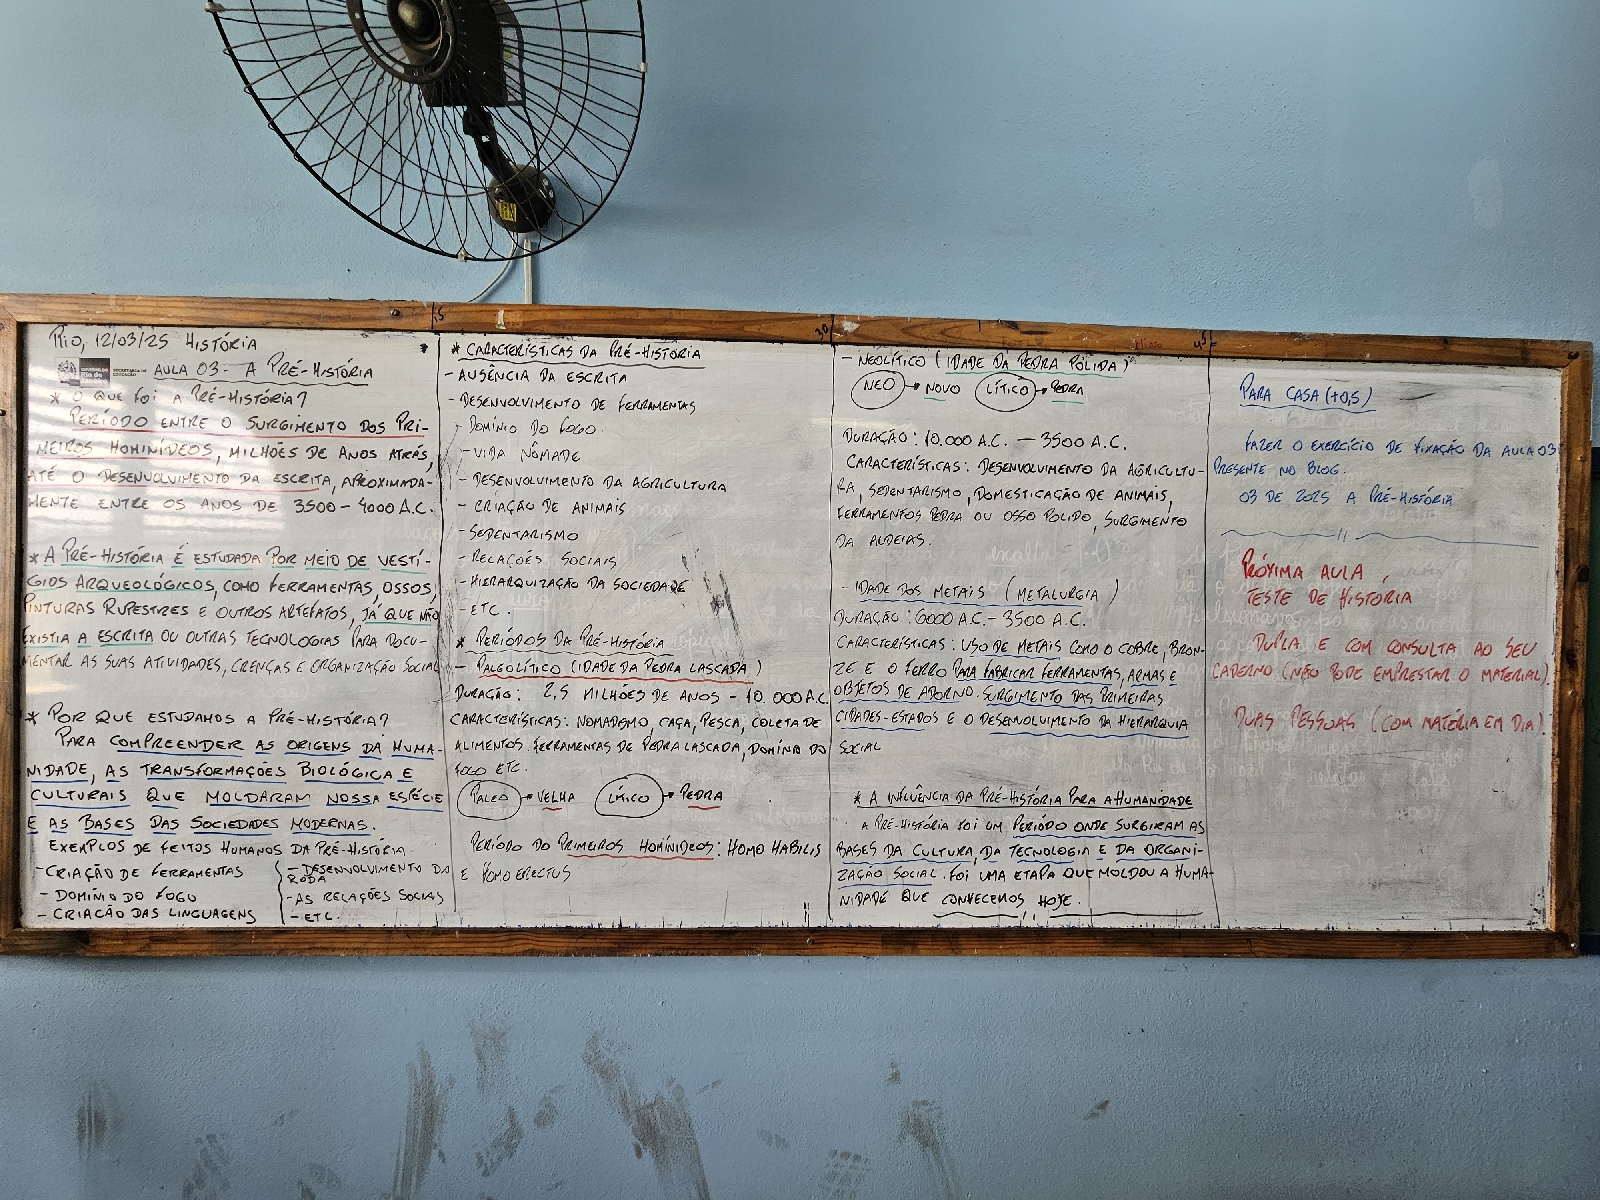 Rio, 12/03/25 História
GOVERNO DO
Rio de
Janeiro
SECRETARIA DE
EDUCAÇÃO
AULA 03 - A PRÉ-HISTÓRIA
* O QUE FOI A PRÉ-HISTÓRIA?
PERÍODO ENTRE O SURGIMENTO DOS PRI-
MEIROS HOMINÍDEOS, MILHÕES DE ANOS ATRÁS,
ATÉ O DESENVOLVIMENTO DA ESCRITA, APROXIMADA-
MENTE ENTRE OS ANOS DE 3500 - 4000 A.C.
* A PRÉ-HISTÓRIA É ESTUDADA POR MEIO DE VESTÍ-
GIOS ARQUEOLÓGICOS, COMO FERRAMENTAS, OSSOS,
PINTURAS RUPESTRES E OUTROS ARTEFATOS, JÁ QUE NÃO
EXISTIA A ESCRITA OU OUTRAS TECNOLOGIAS PARA DOCU-
MENTAR AS SUAS ATIVIDADES, CRENÇAS E ORGANIZAÇÃO SOCIAL
* POR QUE ESTUDAMOS A PRÉ-HISTÓRIA?
PARA COMPREENDER AS ORIGENS DA HUMA-
NIDADE, AS TRANSFORMAÇÕES BIOLÓGICA E
CULTURAIS QUE MOLDARAM NOSSA ESPÉCIE
E AS BASES DAS SOCIEDADES MODERNAS.
EXEMPLOS DE FEITOS HUMANOS DA PRÉ-HISTÓRIA.
- CRIAÇÃO DE FERRAMENTAS
- DOMÍNIO DO FOGO
- CRIAÇÃO DAS LINGUAGENS
- DESENVOLVIMENTO DA
RODA
- AS RELAÇÕES SOCIAS
- ETC.
15
* CARACTERÍSTICAS DA PRÉ-HISTÓRIA
- AUSÊNCIA DA ESCRITA
- DESENVOLVIMENTO DE FERRAMENTAS
- DOMÍNIO DO FOGO
- VIDA NÔMADE
- DESENVOLVIMENTO DA AGRICULTURA
- CRIAÇÃO DE ANIMAIS
- SEDENTARISMO
- RELAÇÕES SOCIAIS
- HIERARQUIZAÇÃO DA SOCIEDADE
- ETC.
* PERÍODOS DA PRÉ-HISTÓRIA
- PALEOLÍTICO (IDADE DA PEDRA LASCADA)
DURAÇÃO: 2,5 MILHÕES DE ANOS - 10.000 A.C.
CARACTERÍSTICAS: NOMADISMO CAÇA, PESCA, COLETA DE
ALIMENTOS. FERRAMENTAS DE PEDRA LASCADA, DOMÍNIO DO
FOGO ETC.
PALEO → VELHA LÍTICO → PEDRA
PERÍODO DO PRIMEIROS HOMÍNIDEOS: HOMO HABILIS
E HOMO ERECTUS
30
- NEOLÍTICO (IDADE DA PEDRA POLIDA)
NEO → NOVO LÍTICO → PEDRA
DURAÇÃO: 10.000 A.C. - 3500 A.C.
CARACTERÍSTICAS: DESENVOLVIMENTO DA AGRICULTU-
RA, SEDENTARISMO, DOMESTICAÇÃO DE ANIMAIS,
FERRAMENTOS PEDRA OU OSSO POLIDO, SURGIMENTO
DA ALDEIAS.
- IDADE DOS METAIS (METALURGIA)
DURAÇÃO: 6000 A.C. - 3500 A.C.
CARACTERÍSTICAS: USO DE METAIS COMO O COBRE, BRON-
ZE E O FERRO PARA FABRICAR FERRAMENTAS, ARMAS E
OBJETOS DE ADORNO. SURGIMENTO DAS PRIMEIRAS
CIDADES-ESTADOS E O DESENVOLVIMENTO DA HIERARQUIA
SOCIAL
* A INFLUÊNCIA DA PRÉ-HISTÓRIA PARA A HUMANIDADE
A PRÉ-HISTÓRIA FOI UM PERÍODO ONDE SURGIRAM AS
BASES DA CULTURA, DA TECNOLOGIA E DA ORGANI-
ZAÇÃO SOCIAL. FOI UMA ETAPA QUE MOLDOU A HUMA-
NIDADE QUE CONHECEMOS HOJE.
45
PARA CASA (+0,5)
FAZER O EXERCÍCIO DE FIXAÇÃO DA AULA 03
PRESENTE NO BLOG.
03 DE 2025 A PRÉ-HISTÓRIA
PRÓXIMA AULA
TESTE DE HISTÓRIA
DUPLA E COM CONSULTA AO SEU
CADERNO (NÃO PODE EMPRESTAR O MATERIAL).
DUAS PESSOAS (COM MATÉRIA EM DIA).